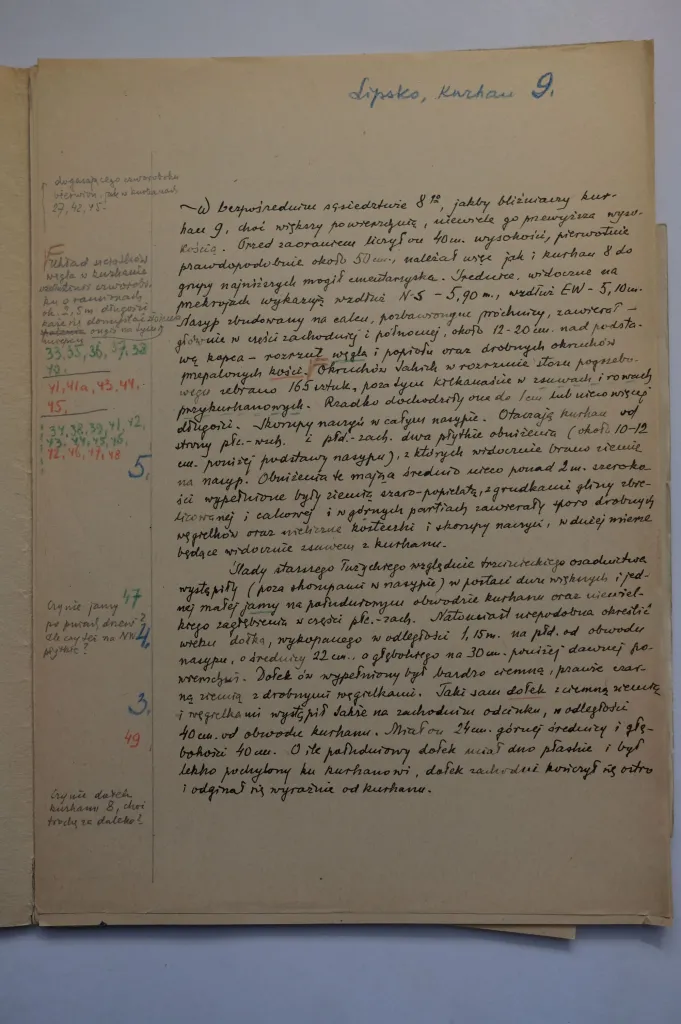 Lipsko, kurhan 9.
W bezpośrednim sąsiedztwie 8ᵍᵒ, jakby bliźniaczy kur-
han 9, choć większy powierzchnią, niewiele go przewyższa wyso-
kością. Przed zaoraniem liczył on 40 cm. wysokości, pierwotnie
prawdopodobnie około 50 cm., należał więc jak i kurhan 8 do
grupy najniższych mogił cmentarzyska. Średnice, widoczne na
przekrojach wykazują wzdłuż N-S – 5,90 m., wzdłuż EW – 5,10 m.
Nasyp zbudowany na calcu, pozbawionym próchnicy, zawierał –
głównie w części zachodniej i północnej, około 12-20 cm. nad podsta-
wą kopca – rozrzut węgla i popiołu oraz drobnych okruchów
przepalonych kości. Okruchów takich w rozrzucie stosu pogrzebo-
wego zebrano 165 sztuk, poza tym kilkanaście w zsuwach i rowach
przykurhanowych. Rzadko dochodziły one do 1 cm lub nieco więcej
długości. Skorupy naczyń w całym nasypie. Otaczają kurhan od
strony płn.-wsch. i płd.-zach. dwa płytkie obniżenia (około 10-12
cm. poniżej podstawy nasypu), z których widocznie brano ziemię
na nasyp. Obniżenia te mają średnio nieco ponad 2 m. szeroko-
ści wypełnione były ziemią szaro-popielatą, z grudkami gliny zbie-
licowanej i calcowej i w górnych partiach zawierały sporo drobnych
węgielków oraz nieliczne kosteczki i skorupy naczyń, w dużej mierze
będące widocznie zsuwem z kurhanu.
Ślady starszego łużyckiego względnie trzcinieckiego osadnictwa
wystąpiły (poza skorupami w nasypie) w postaci dwu większych i jed-
nej małej jamy na południowym obwodzie kurhanu oraz niewiel-
kiego zagłębienia w części płn.-zach. Natomiast niepodobna określić
wieku dołka, wykopanego w odległości 1,15 m. na płd. od obwodu
nasypu, o średnicy 22 cm., a głębokiego na 30 cm. poniżej dawnej po-
wierzchni. Dołek ów wypełniony był bardzo ciemną, prawie czar-
ną ziemią z drobnymi węgielkami. Taki sam dołek z ciemną ziemią
i węgielkami wystąpił także na zachodnim odcinku, w odległości
40 cm. od obwodu kurhanu. Miał on 24 cm. górnej średnicy i głę-
bokości 40 cm. O ile południowy dołek miał dno płaskie i był
lekko pochylony ku kurhanowi, dołek zachodni kończył się ostro
i odginał się wyraźnie od kurhanu.
27, 42, 45.
Układ ucisków
węgla w kurhanie
ok. 2,5 m długości
33, 35, 36, 37, 38
40.
41, 41a, 43, 44,
45,
34, 38, 39, 41, 42,
43, 44, 45, 46,
12, 46, 47, 48
5.
47
Czy nie jamy
4.
płytkie?
3.
49
Czy nie dołek
kurhanu 8, choć
trochę za daleko?